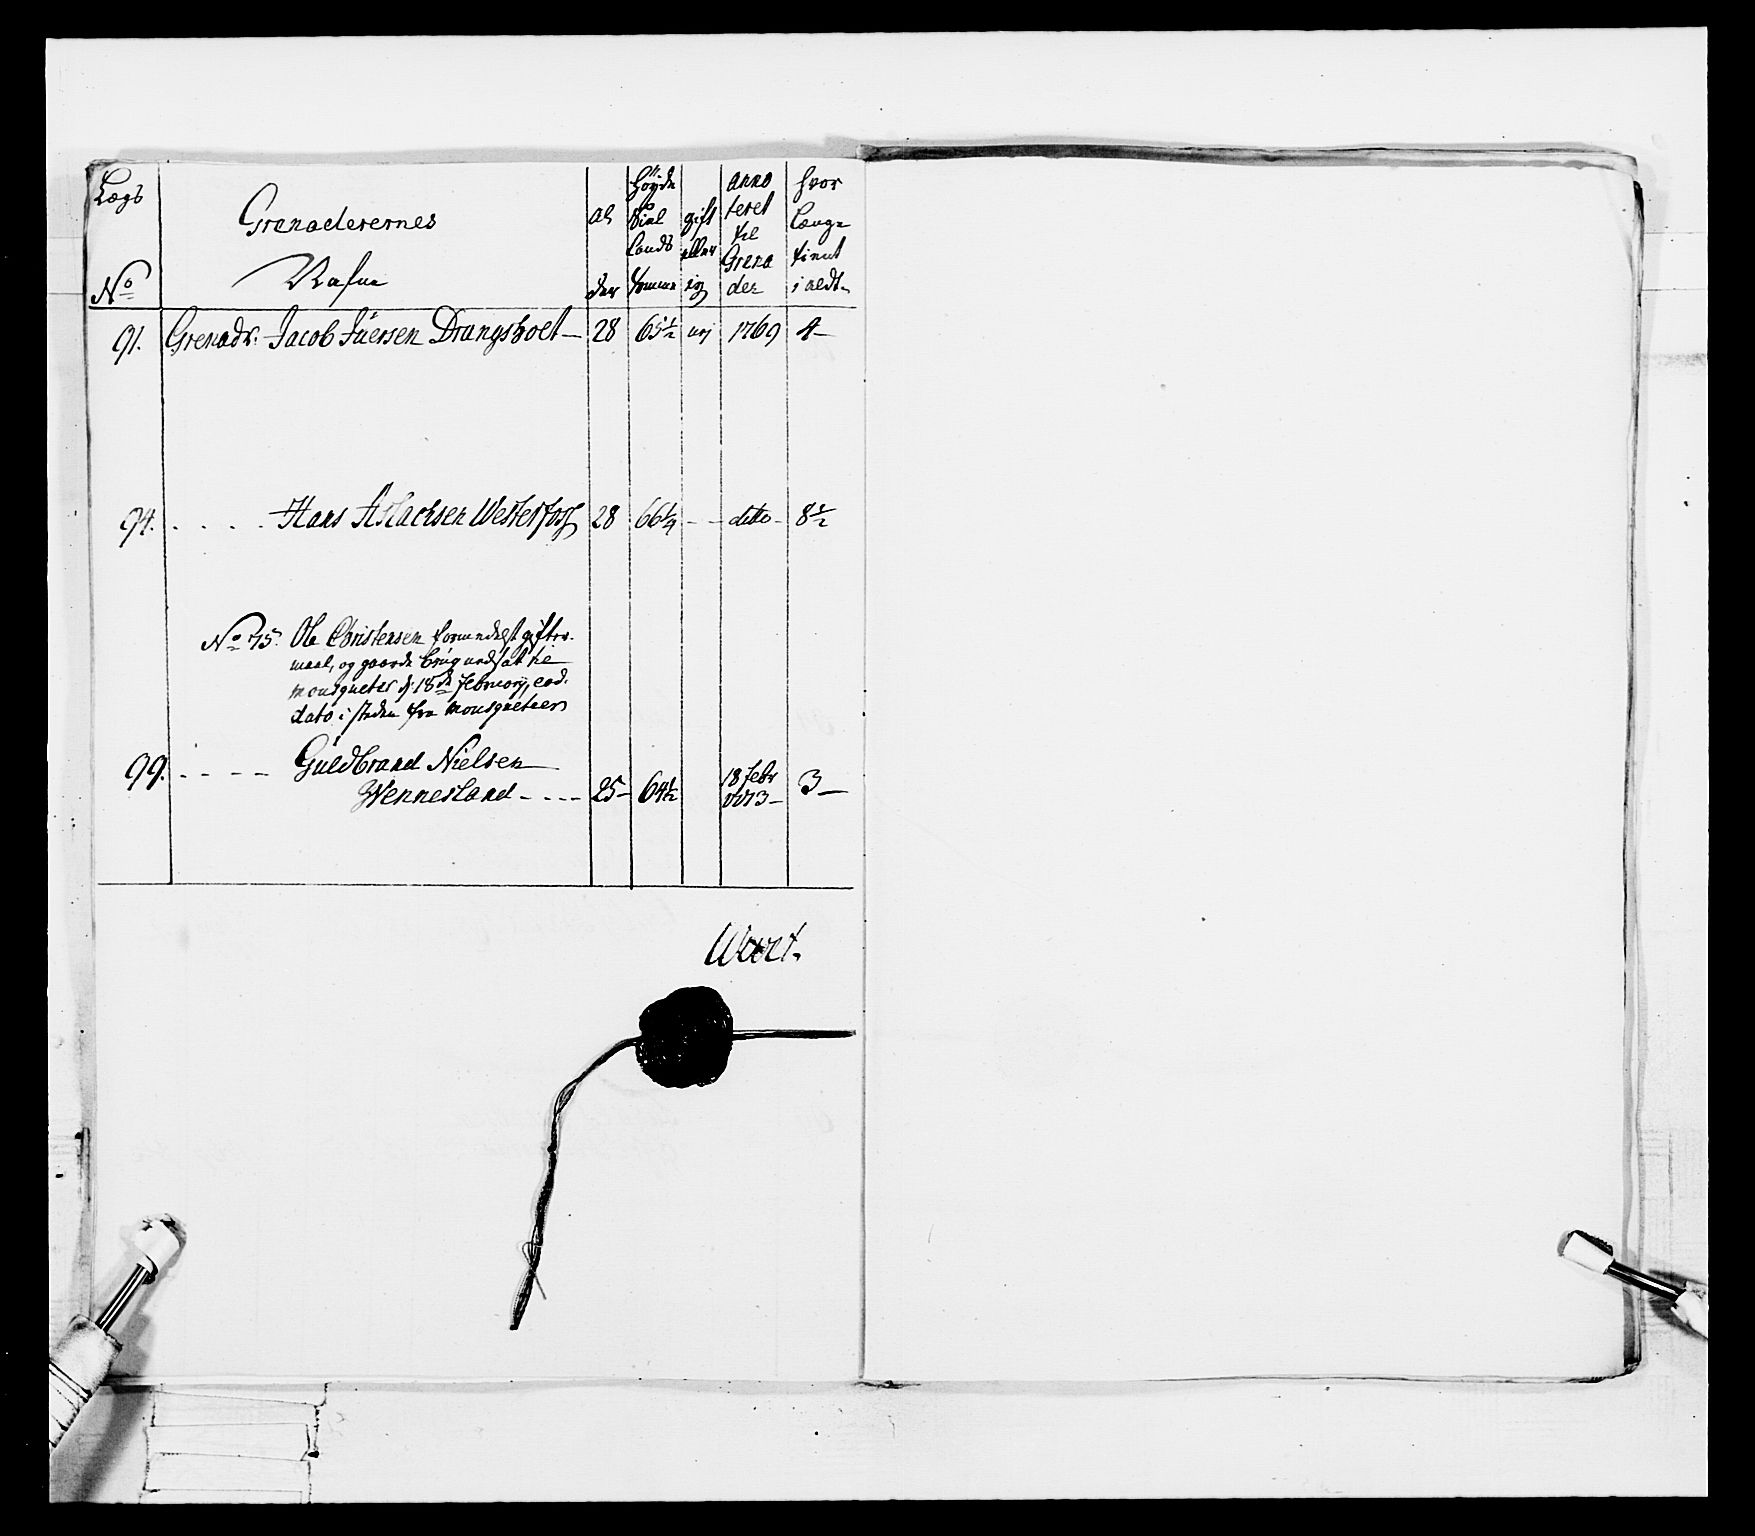 Lægs
No
Grenaderernes
Nafne
al
der
Høyde
Siæl
lands
tomme
gift
eller
ey
anno
teret
til
Grena
der
hvor
længe
tient
i aldt
91. Grenadr: Jacob Juersen Drangsholt 28 65½ ug 1769 4
94. - - - - Hans Aslachsen Westerfos 28 66¼ - - ditto - 8½
No 75. Ole Christensen formedelst gifter-
maal, og gaards brug udsat til
mousqueter d. 18de february, eod.
dato i steden fra mousqueteer
99. - - - - Guldbrand Nielsen
Wennesland - - - - 25 64½ 18 febr 1773 3